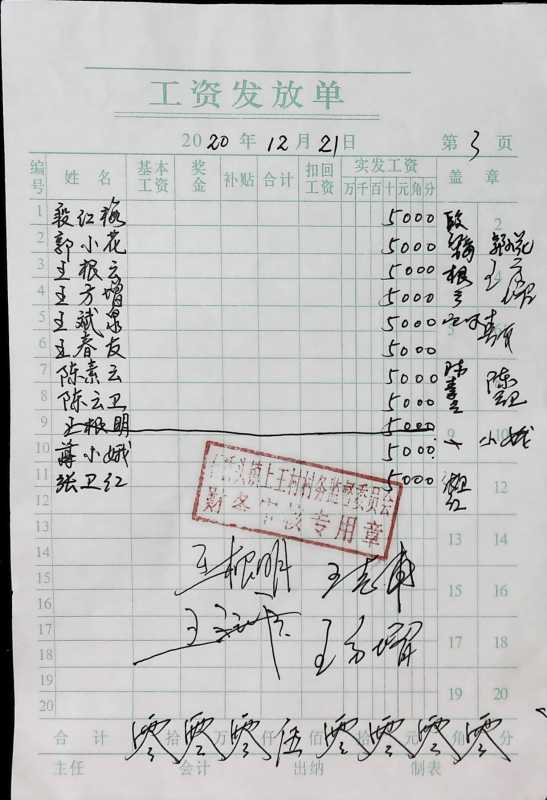 工资发放单
2020年12月21日 第3页
编号 姓名 基本工资 奖金 补贴 合计 扣回工资 实发工资 万千百十元角分 盖章
1 段红梅 5000 2
2 郭小花 5000
3 王根云 5000 4
4 王方增 5000
5 王斌泉 5000
6 王春友 5000
7 陈素云 5000 陈
8 陈云卫 5000
9 王根明 5000 9 10
10 蒋小娥 5000 小娥
11 张卫红 5000 12
12
镇上王村村务监督委员会
财务审核专用章
13 13 14
14
15 王根明 15 16
16
17 王方增 17 18
18
19 19 20
20
合计 零拾零万零仟伍佰零拾零元零角零分
主任 会计 出纳 制表